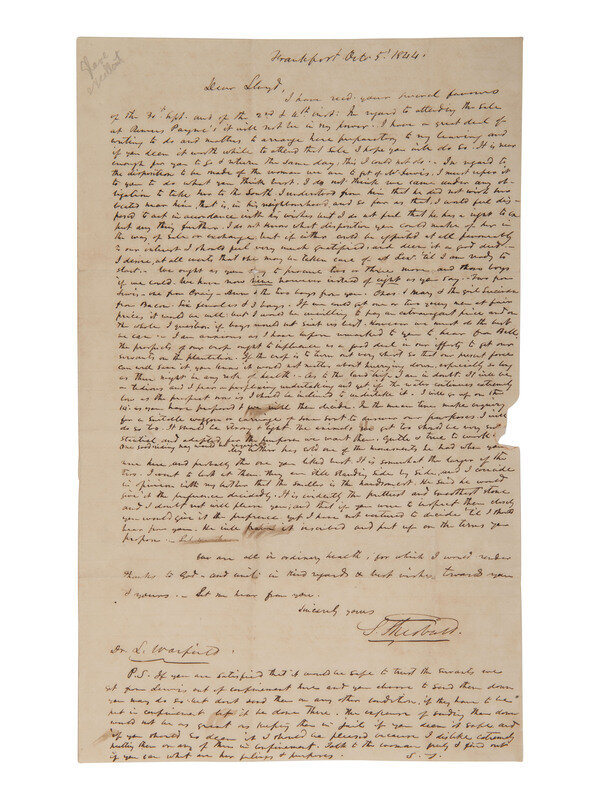 Slave
Frankfort Octo 5' 1844.
Dear Lloyd,
I have recd. your several favours
of the 30th Sept. and of the 2nd & 4th inst. In regard to attending the sale
at Payne's it will not be in my power. I have a great deal of
writing to do and matters to arrange here preparatory to my leaving and
if you deem it worth while to attend that sale I hope you will do so. It is near
enough for you to go & return the same day; this I could not do. In regard to
the disposition to be made of the woman we are to get of Mr Lewis, I must refer it
to you to do what you think best. I do not think we came under any ob-
ligation to take her to the South. I understood from him that he did not wish her
located near him, that is, in his neighbourhood, and so far as that, I would feel dis-
posed to act in accordance with his wishes but I do not feel that he has a right to
put any thing further. I do not know what disposition you could make of her in
the way of sale or exchange but if either could be effected at all favourably
to our interest I should feel very much gratified, and deem it a good deed.
I desire, at all events that she may be taken care of at Lew' 'til I am ready to
start. We ought as you say to procure two or three more and those boys
if we could. We have now been however instead of eight as you say. Two from
Lewis, one from Craig, & the two boys from you. Chas & Mary & the girl Lucinda
from Bacon two females & 3 boys. If we could get one or two young men at fair
prices it would be well but I would be unwilling to pay an extravagant price and on
the whole I question if boys would not suit us best. However we must do the best
we can. I am anxious as I have before remarked to you to hear from Bell.
the prospects of our crop ought to influence us a good deal in our efforts to get our
servants on the plantation. If the crop is to turn out very short so that our present force
can well save it, you know it would not matter about hurrying down, especially so long
as there might be any risk of health. As to the land trip, I am in doubt. It will be
a tedious and I fear a perplexing undertaking and yet if the water continues extremely
low as the prospect now is I should be inclined to undertake it. I will go up on the
as you have proposed & we will then decide. In the mean time make inquiry
for a suitable waggon or carriage of some sort to answer our purposes. I will
do so too. It should be strong & light. The animals, we get too should be very well
selected and adapted for the purpose we want them. Gentle & true to work.
One good riding nag would be required.
My brother has sold one of the monuments he had when you
were here, and probably the one you liked best. It is somewhat the larger of the
two. I went to look at them; they are still standing side by side, and I coincide
in opinion with my brother that the smaller is the handsomest. He said he would
give it the preference decidedly. It is evidently the prettiest and smoothest stone
and I doubt not will please you; and that if you were to inspect them closely
you would give it the preference yet I have not ventured to decide 'til I should
hear from you. He will have it inscribed and put up on the terms you
propose.
We are all in ordinary health, for which I would render
thanks to God and unite in kind regards & best wishes toward you
& yours. Let me hear from you.
Sincerely yours
S. Theobald.
Dr L. Warfield.
P.S. If you are satisfied that it would be safe to trust the servants we
get from Lewis, out of confinement here and you choose to send them down
you may do so but dont send them in any other condition, if they have to be
put in confinement let it be done there. The expense of sending them down
would not be as great as keeping them in jail if you deem it safe and
if you should so deem it I should be pleased because I dislike extremely
putting them or any of them in confinement. Talk to the woman freely & find out
if you can what are her feelings & purposes. S. T.